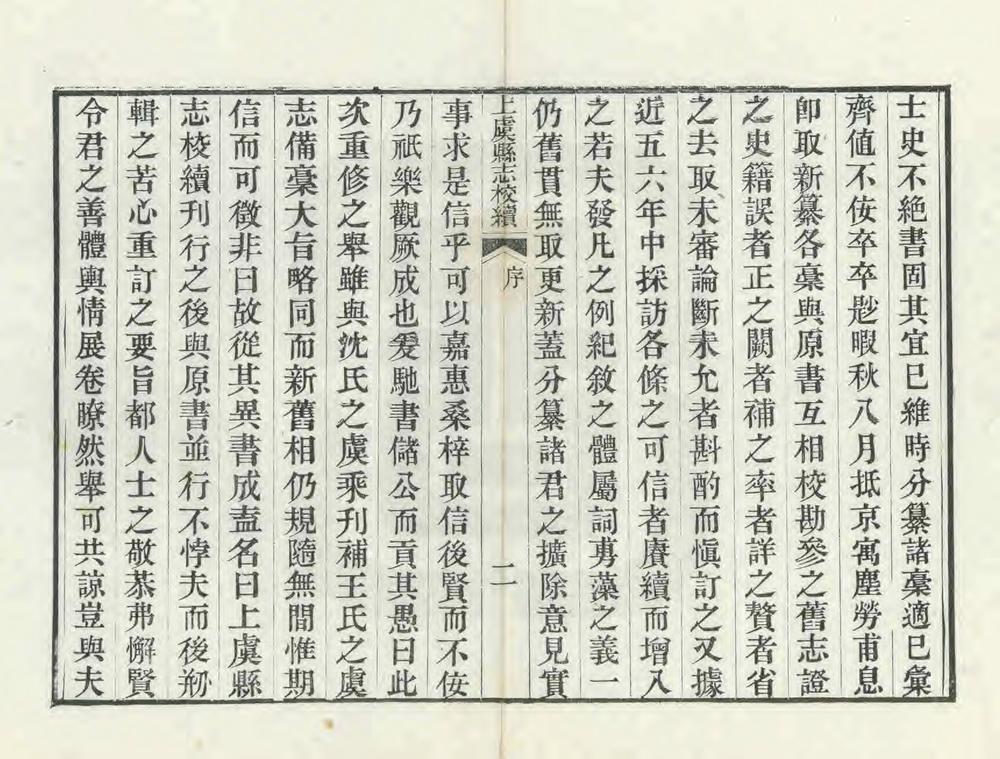 士史不絶書固其宜巳維時分纂諸稾適巳彙
齊值不佞卒卒尟暇秋八月抵京寓塵勞甫息
卽取新纂各稾與原書互相校勘參之舊志證
之史籍誤者正之闕者補之率者詳之贅者省
之去取未審論斷未允者斟酌而愼訂之又據
近五六年中採訪各條之可信者賡續而增入
之若夫發凡之例紀敘之體屬詞勇藻之義一
仍舊貫無取更新蓋分纂諸君之擴除意見實
上虞縣志校續
序
二
事求是信乎可以嘉惠桑梓取信後賢而不佞
乃祇樂觀厥成也爰馳書儲公而貢其愚曰此
次重修之舉雖與沈氏之虞乘刊補王氏之虞
志備稾大旨略同而新舊相仍規隨無閒惟期
信而可徵非曰故從其異書成盍名曰上虞縣
志校續刊行之後與原書並行不悖夫而後剙
輯之苦心重訂之要旨都人士之敬恭弗懈賢
令君之善體輿情展卷瞭然舉可共諒豈與夫